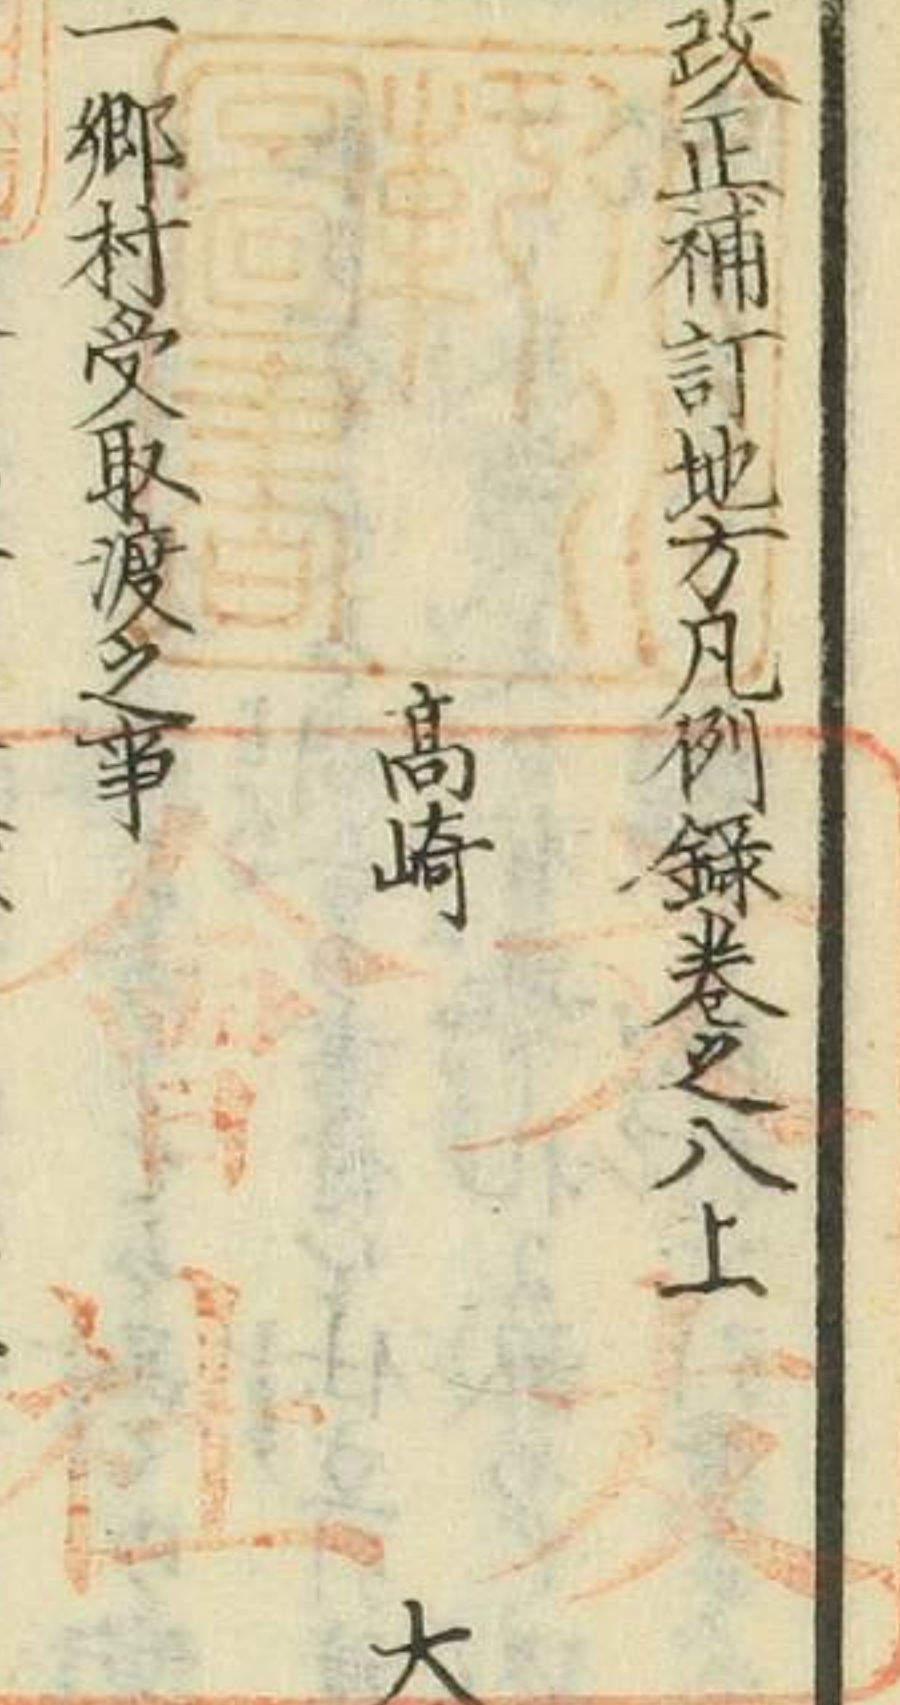 改正補訂地方凡例録巻之八上
高崎 大
一郷村受取渡之事